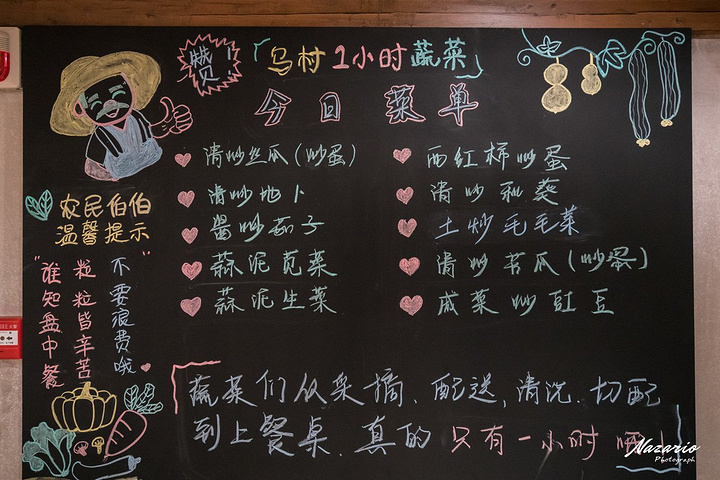 赞
「乌村1小时蔬菜」
今日菜单
清炒丝瓜(炒蛋)
西红柿炒蛋
清炒地卜
清炒秋葵
酱炒茄子
土炒毛毛菜
蒜泥苋菜
清炒苦瓜(炒蛋)
蒜泥生菜
咸菜炒豇豆
农民伯伯
温馨提示
"谁知盘中餐
粒粒皆辛苦
不要浪费哦"
蔬菜们从采摘、配送,清洗.切配
到上餐桌.真的只有一小时
Nazario
Photograph